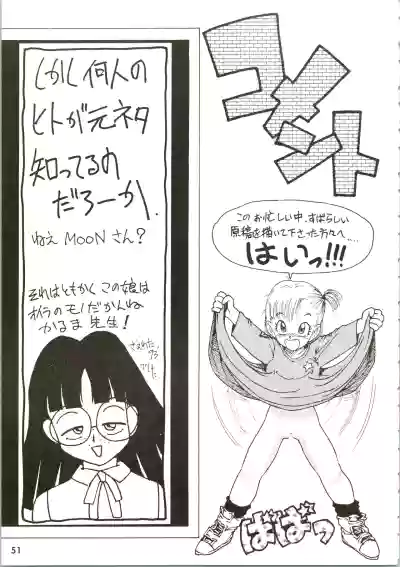 コメント
このお忙しい中、すばらしい
原稿を描いて下さった方々へ…
はいっ!!!
ばばっ
しかし何人の
ヒトが元ネタ
知ってるの
だろーか.
ねえ MOON さん?
それはともかく この娘は
オイラのモノだかんね
かるま先生!
51